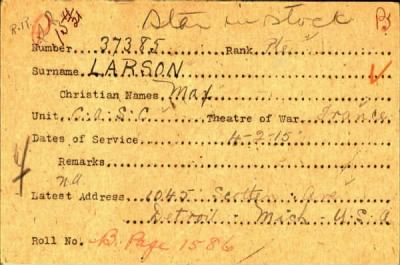 Star in stock B
R.17.
Number 37385 Rank Pte.
Surname LARSON
Christian Names Max
Unit C.A.S.C. Theatre of War France
Dates of Service 4-2-15
Remarks
n.a
Latest Address 1045 Scotten Ave
Detroit - Mich - U.S.A
Roll No. B. Page 1586